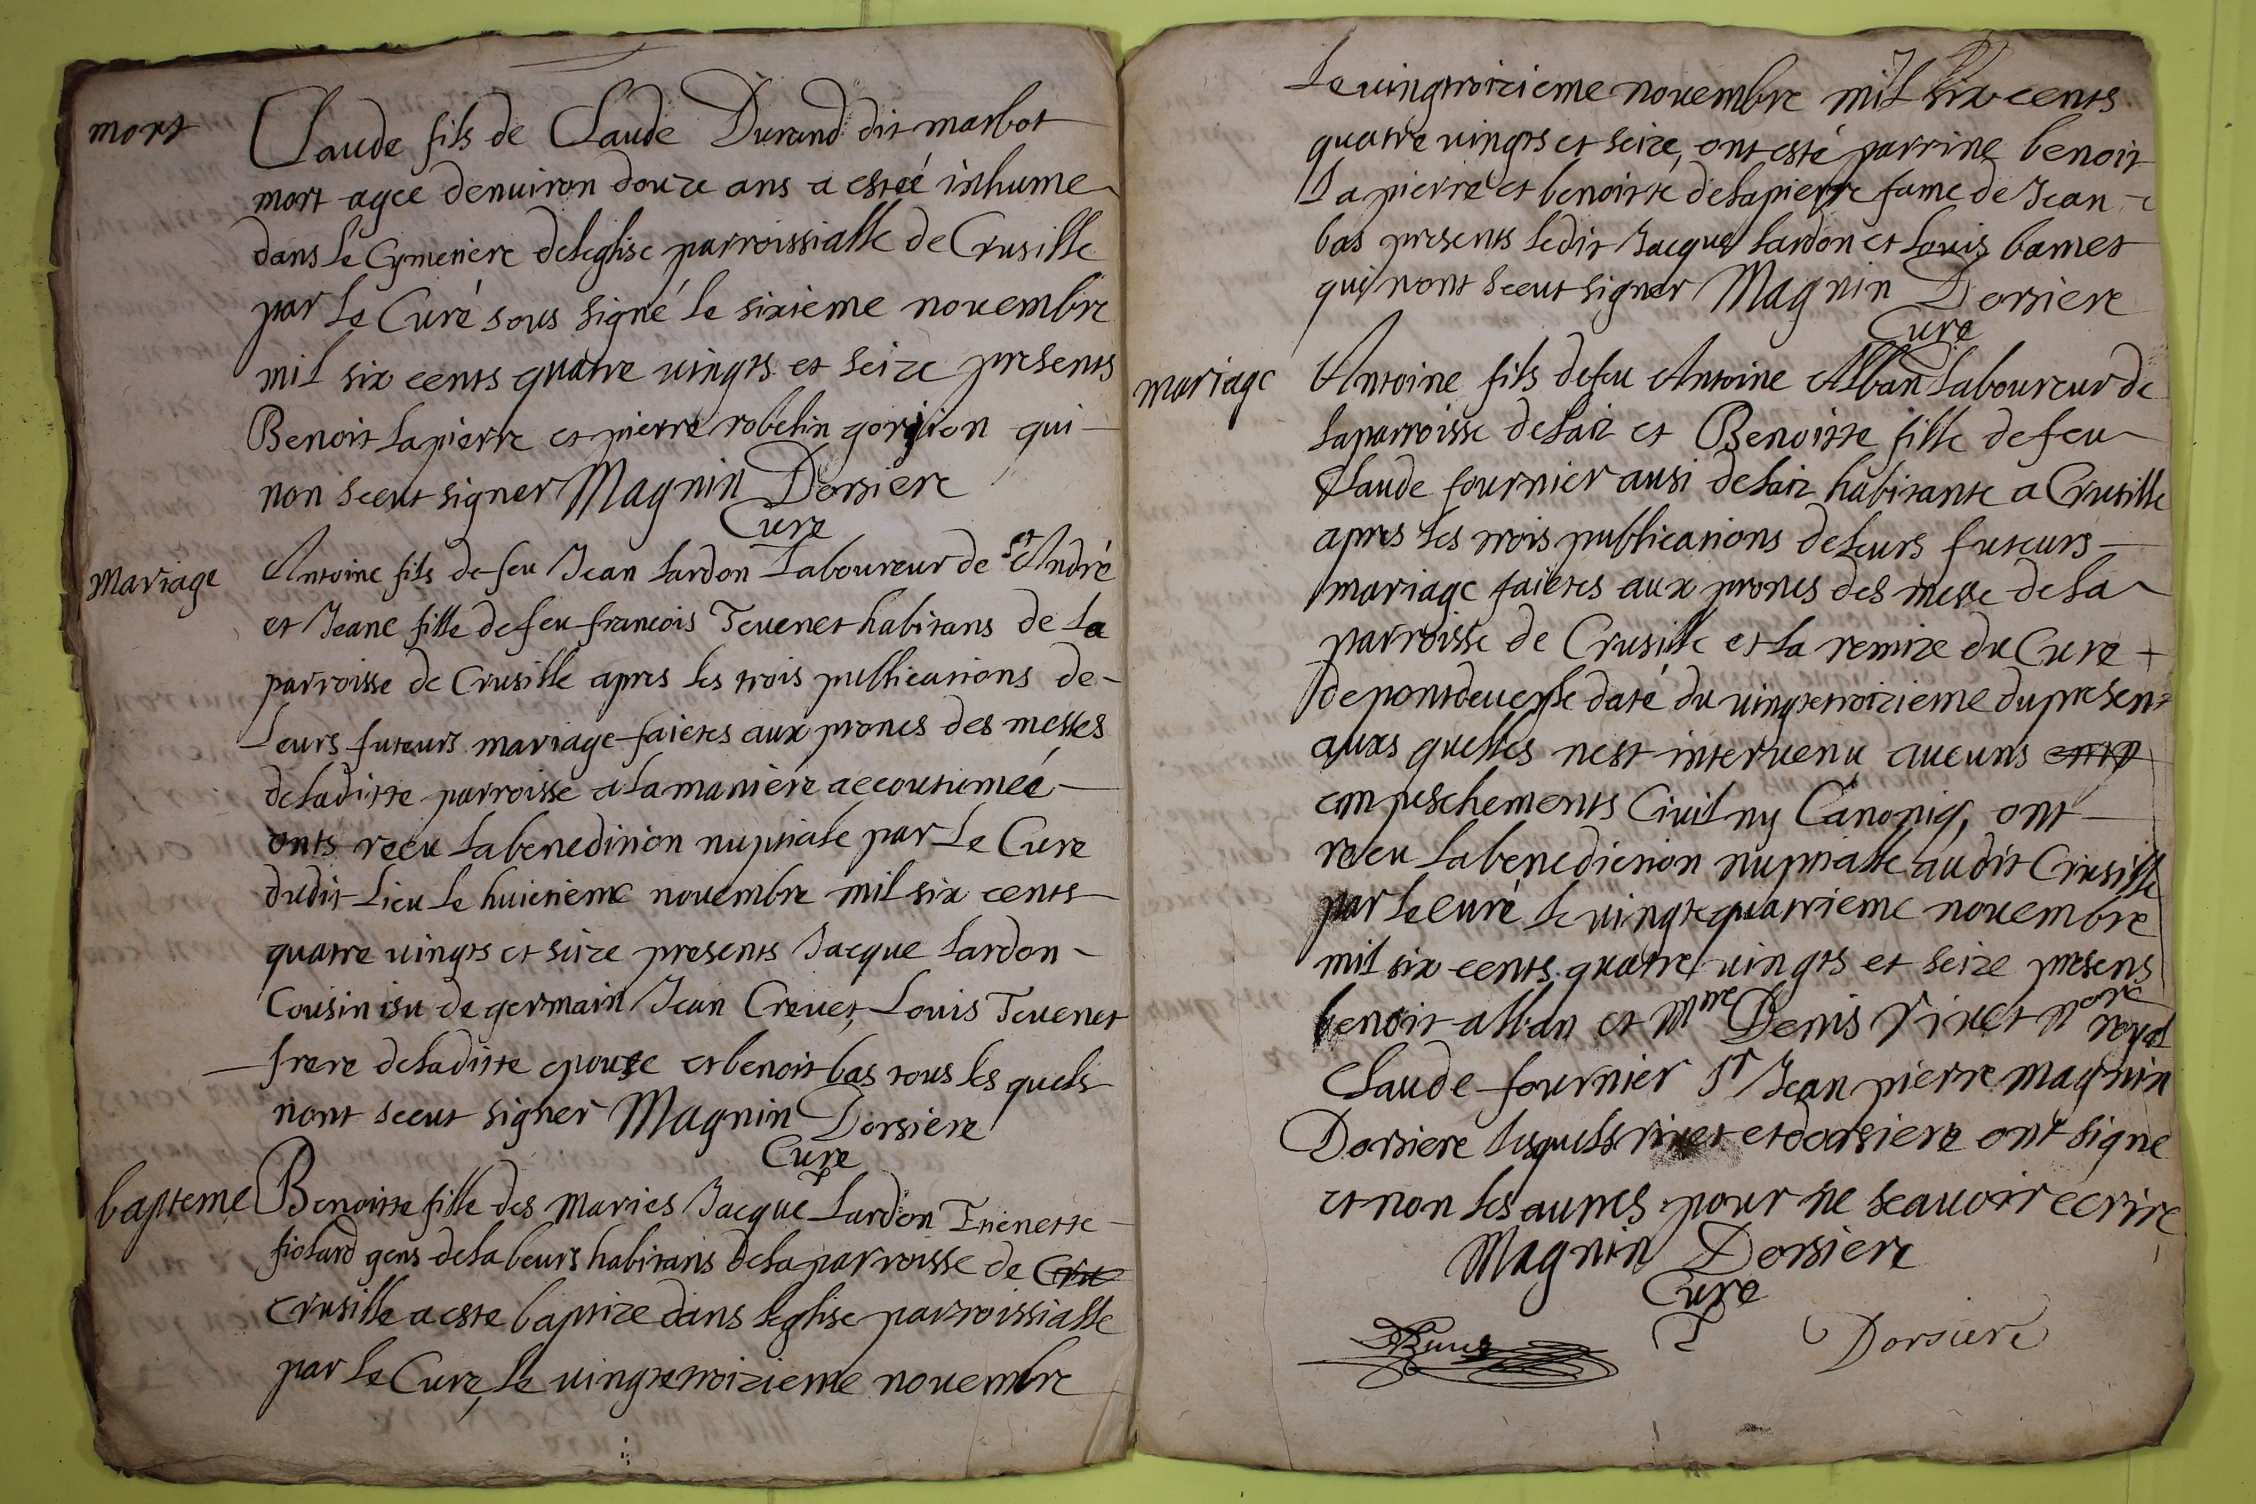 mort
Claude fils de Claude Durand dit marbot
mort agee denuiron douze ans a estéé inhume
dans le Cymetiere deleglise parroissialle de Crusille
par Le Curé sous signé le sixieme nouembre
mil six cents quatre uingts et seize presents
Benoit Lapierre et pierre robelin gorjion qui
non sceut signer Magnin Dorsiere
Cure
Mariage
Antoine fils de feu Jean Lardon Laboureur de St André
et Jeane fille de feu francois Teuenet habitans de La
parroisse de Crusille apres les trois publications de
Leurs futeurs mariage faictes aux prones des messes
deladitte parroisse a la maniere accoutuméé
onts receu Labenedition nuptiale par Le Cure
dudit Lieu le huictieme nouembre mil six cents
quatre uingts et seize presents Jacque Lardon
Cousin isu de germain Jean Creuet, Louis Teuenet
frere deladitte epouse et benoit bas tous les quels
nont sceut signer Magnin Dorsiere
Cure
bapteme
Benoitte fille des maries Jacque Lardon Etienette
fiolard gens delabeurs habitans delaparroisse de Cru
Crusille a este baptize dans leglise parroissialle
par Le Cure, Le uingtetroizieme nouembre
Le uingtroizieme nouembre mil six cents
quatre uingts et seize, ont esté parrine benoit
Lapierre et benoitte delapierre fame de Jean
bas presents ledit Jacque Lardon et Louis bamet
qui nont sceut signer Magnin Dorsiere
Cure
mariage
Antoine fils defeu Antoine Alban Laboureur de
laparroisse delaiz et Benoitte fille defeu
Claude fournier ausi delaiz habitante a Crusille
apres les trois publications deleurs futeurs
mariage faictes aux prones des messe dela
parroisse de Crusille et la remize du Cure
depontdeueyle daté du uingtetroizieme dupresent
auxs quelles nest interuenu aucuns
empeschements Ciuil ny Canoniq, ont
receu labenediction nuptialle audit Crusille
par le curé le uingtequatrieme nouembre
mil six cents quatre uingts et seize presens
benoit alban et Mtre Denis Riuet Nore royal
Claude fournier Sr Jean pierre magnin
Dorsiere lesquels riuet et dorsiere ont signe
et non les autres pour ne scauoir ecrire
Magnin Dorsiere
Cure
Dorsiere